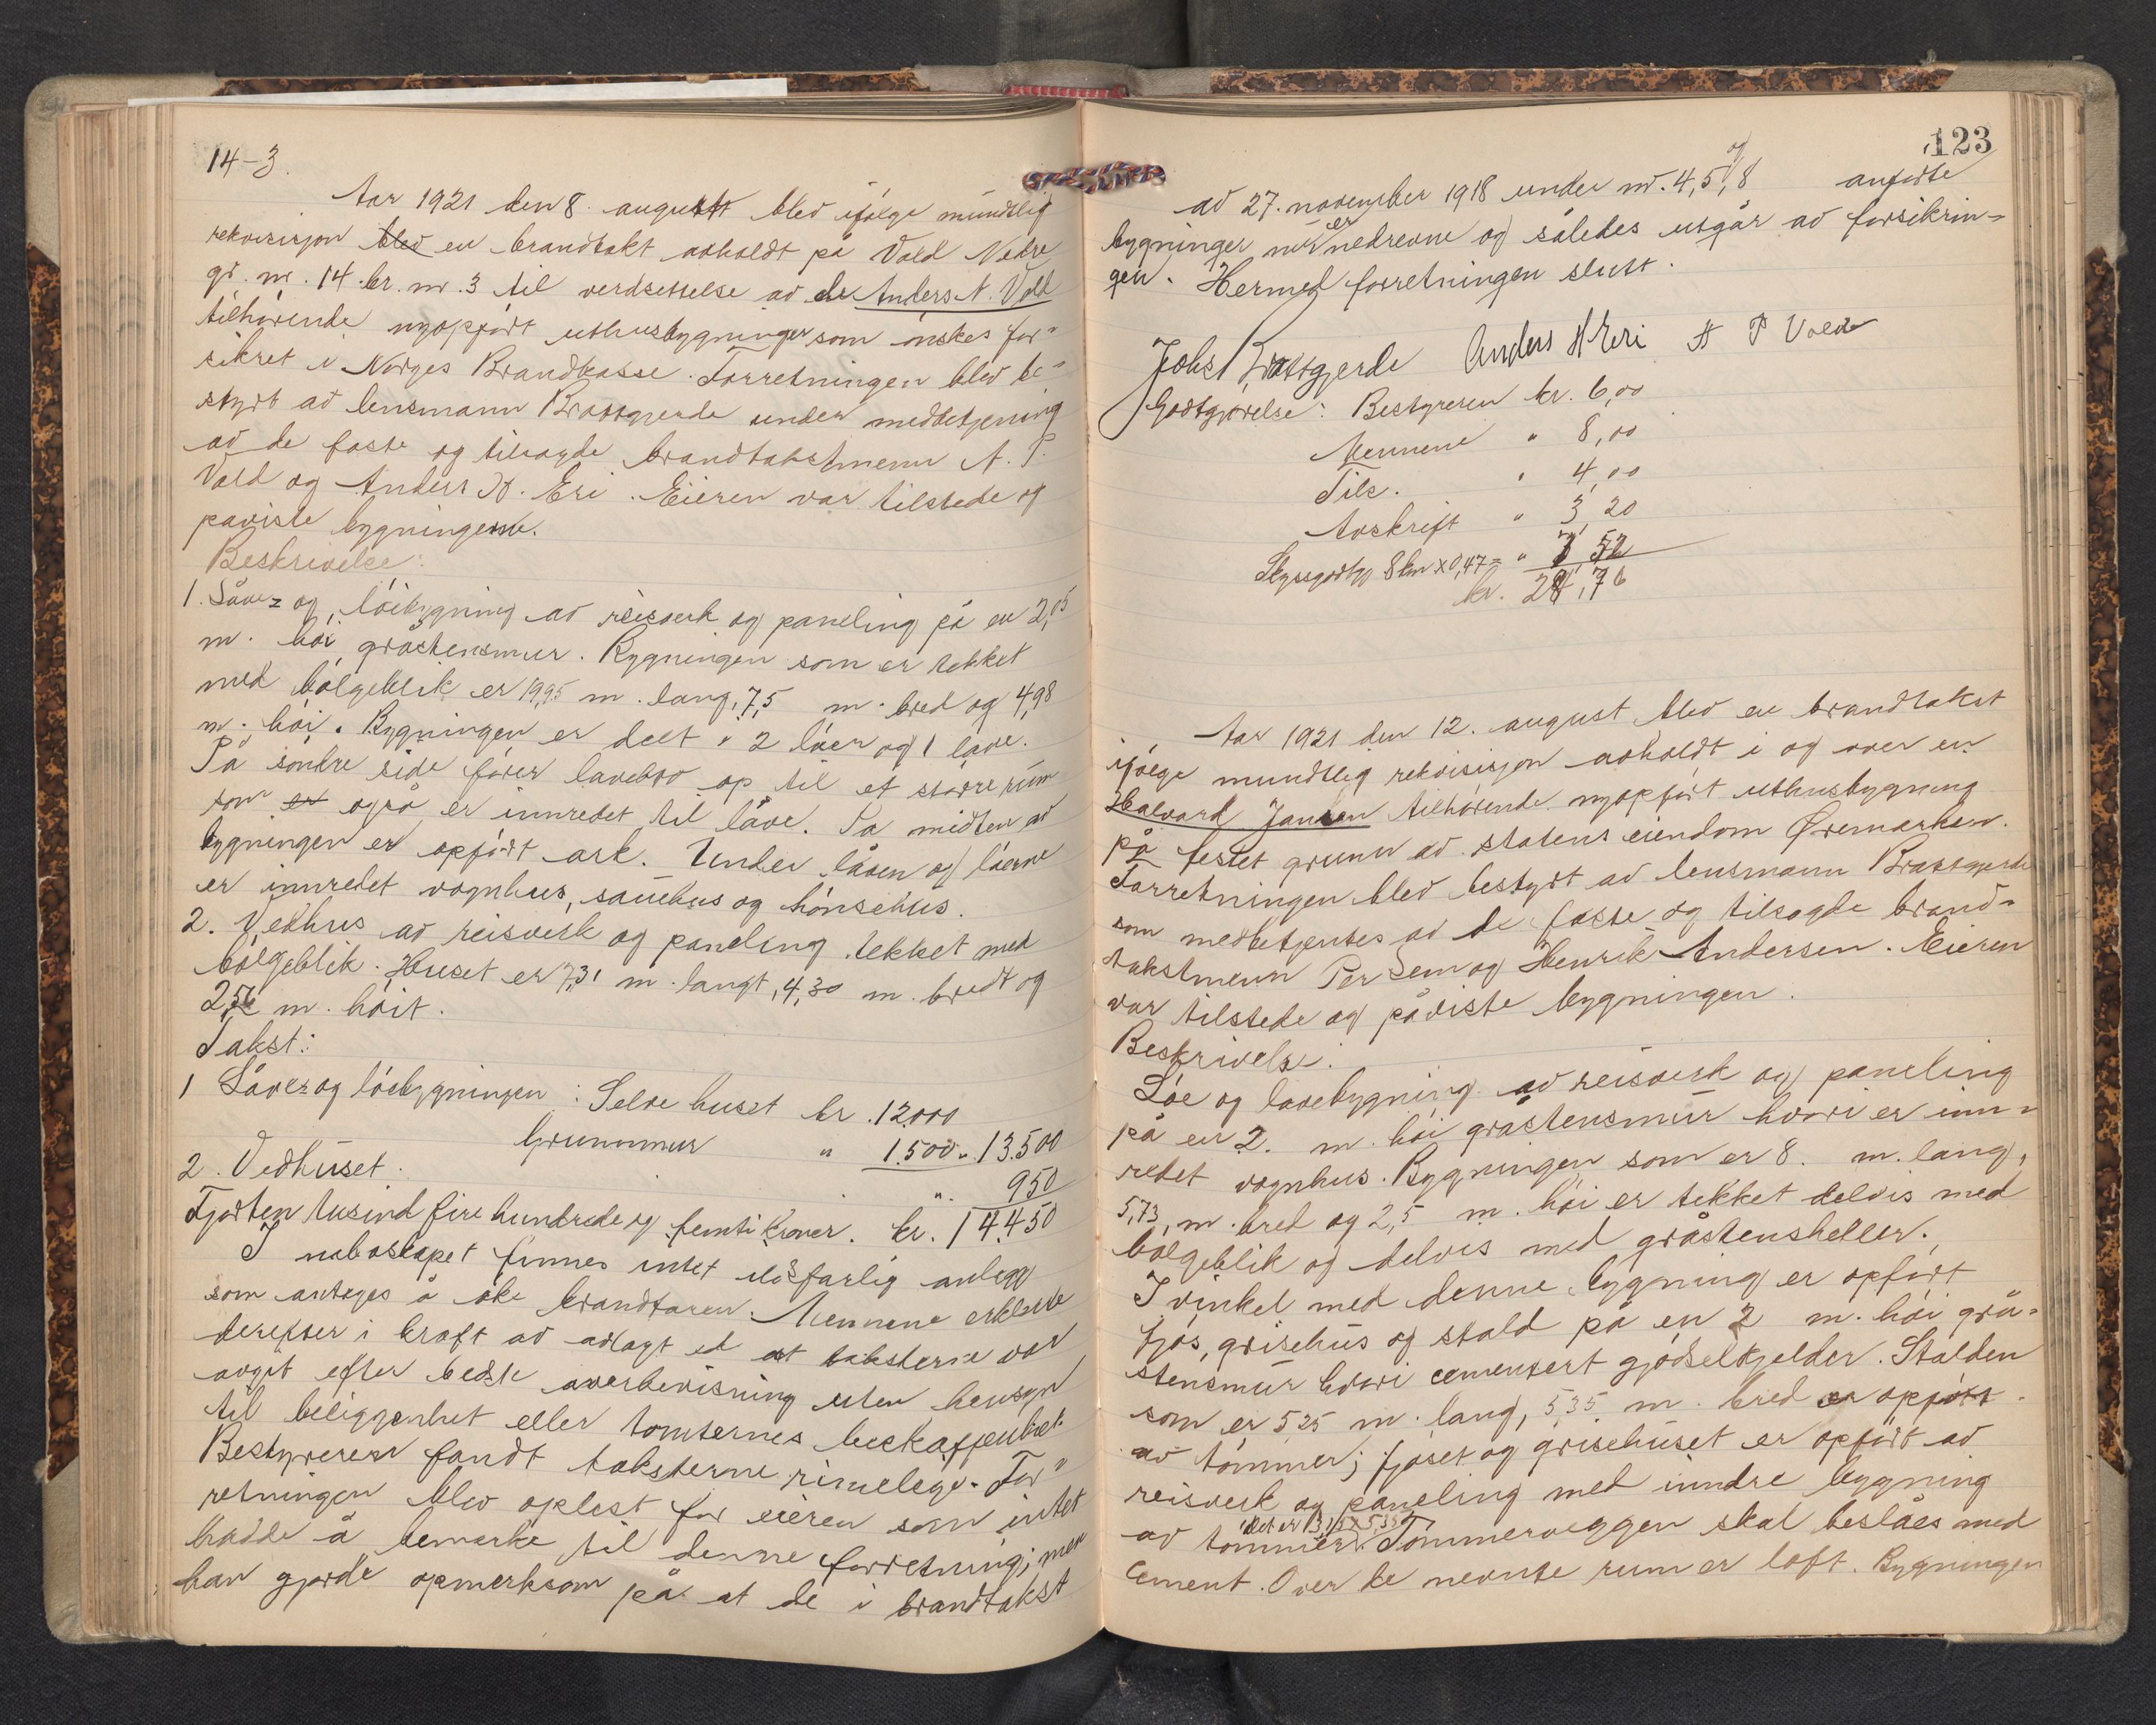 14-3.
Aar 1921 den 8. august blev ifølge mundtlig
rekvisisjon blev en brandtakt avholdt på Vold Nedre
gr. nr. 14 br. nr. 3 til verdsettelse av de Anders N. Vold
tilhørende nyopført uthusbygninger som ønskes for-
sikret i Norges Brandkasse. Forretningen blev be-
styrt av lensmann Brattgjerde under medbetjening
av de faste og tilsagde brandtakstmenn A. P.
Vold og Anders H. Eri. Eieren var tilstede og
paviste bygningerne.
Beskrivelse:
1. Låve- og løebygning av reisverk og paneling på en 2,05
m. høi gråstensmur. Bygningen som er tekket
med bølgeblik er 19,95 m. lang, 7,5 m. bred og 4,98
m. høi. Bygningen er delt i 2 løer og 1 lave.
På søndre side fører lavebro op til et større rum
som er også er innredet til låve. Pa midten av
bygningen er opført ark. Under låven og løerne
er innredet vognhus, sauehus og hønsehus.
2. Vedhus av reisverk og paneling tekket med
bølgeblik. Huset er 7,31 m. langt, 4,30 m. bredt og
m. høit.
Takst:
1 Låve- og løebygningen: Selve huset kr. 12.000
Grunnmur " 1.500 " 13.500
2. Vedhuset. " 950
Fjorten tusind fire hundrede og femti kroner. kr. 14.450
I naboskapet finnes intet ildsfarlig anlegg
som antages å øke brandfaren. Mennene erklærte
derefter i kraft av avlagt ed at taksterne var
avgit efter bedste overbevisning uten hensyn
til beliggenhet eller tomternes beskaffenhet.
Bestyreren fandt taksterne rimelege. For-
retningen blev oplest for eieren som intet
hadde å bemerke til denne forretning; men
han gjorde opmerksom på at de i brandtakst
123
av 27. november 1918 under nr. 4, 5, 7, 8 anførte
bygninger nu er nedrevne og således utgår av forsikrin-
gen. Hermed forretningen slutt.
Johs Brattgjerde Anders H Eri A P Vold
Godtgjørelse: Bestyreren kr. 6,00
Mennene " 8,00
Tils. " 4,00
Avskrift " 3,20
Skyssgodtgj 8 km x 0,47 = "
kr.
Aar 1921 den 12. august blev en brandtakst
ifølge mundtlig rekvisisjon avholdt i og over en
Halvard Jansen tilhørende nyopført uthusbygning
på festet grunn av statens eiendom Øremarken.
Forretningen blev bestyrt av lensmann Brattgjerde
som medbetjentes av de faste og tilsagde brand-
takstmenn Per Lem og Henrik Andersen. Eieren
var tilstede og påviste bygningen.
Beskrivelse.
Løe og lavebygning av reisverk og paneling
på en 2. m. høi gråstensmur hvori er inn-
redet vognhus. Bygningen som er 8. m. lang,
5,73, m. bred og 2,5 m. høi er tekket delvis med
bølgeblik og delvis med gråstensheller.
I vinkel med denne bygning er opført
fjøs, grisehus og stald på en 2 m. høi grå-
stensmur hvori cementert gjødselkjelder. Stalden
som er 5,25 m. lang, 5,35 m. bred er opført
av tømmer; fjøset og grisehuset er opført av
reisverk og paneling med inndre bygning
av tømmer. Tømmerveggen skal beslåes med
cement. Over de nevnte rum er loft. Bygningen